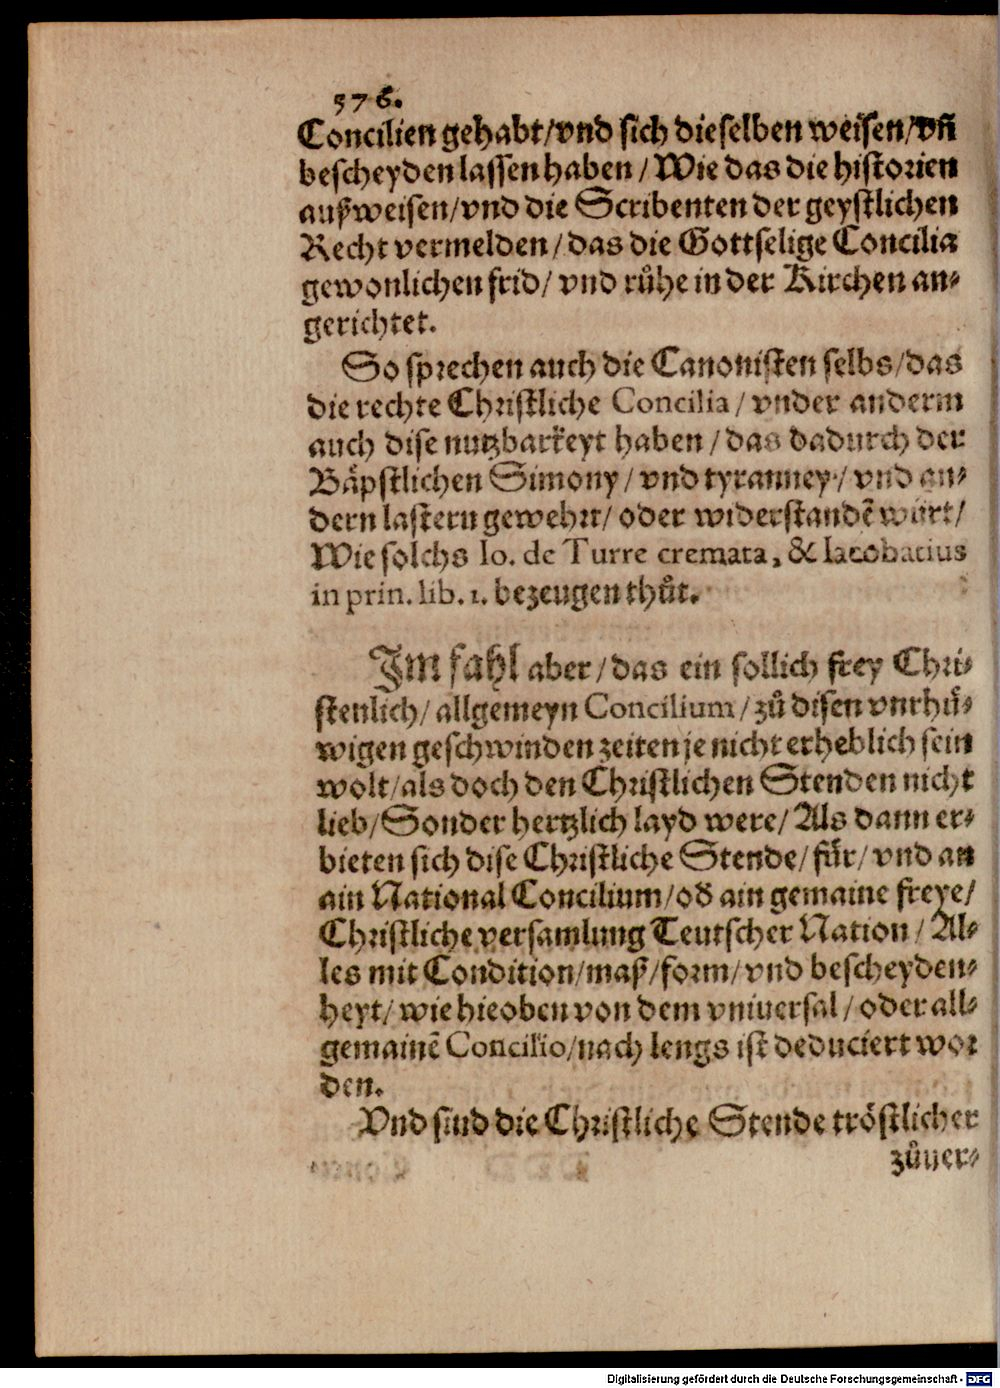 576.
Concilien gehabt/vnd sich dieselben weisen/vñ
bescheyden lassen haben / Wie das die historien
außweisen/vnd die Scribenten der geystlichen
Recht vermelden/das die Gottselige Concilia
gewonlichen frid/ vnd růhe in der Kirchen an-
gerichtet.
So sprechen auch die Canonisten selbs/das
die rechte Christliche Concilia/ vnder anderm
auch dise nutzbarkeyt haben/das dadurch der
Bäpstlichen Simony/ vnd tyranney/ vnd an-
dern lastern gewehrt/ oder widerstandẽ würt/
Wie solchs Io. de Turre cremata, & Iacobatius
in prin. lib. 1. bezeugen thůt.
Im fahl aber/das ein sollich frey Chri-
stenlich/ allgemeyn Concilium/ zů disen vnrhů-
wigen geschwinden zeiten je nicht erheblich sein
wolt/als doch den Christlichen Stenden nicht
lieb/Sonder hertzlich layd were/Als dann er-
bieten sich dise Christliche Stende/für/vnd an
ain National Concilium/oð ain gemaine freye/
Christliche versamlung Teutscher Nation/ Al-
les mit Condition/maß/form/vnd bescheyden-
heyt/wie hieoben von dem vniuersal/oder all-
gemainẽ Concilio/nach lengs ist deduciert wor
den.
Vnd sind die Christliche Stende tröstlicher
zůuer-
Digitalisierung gefördert durch die Deutsche Forschungsgemeinschaft - DFG